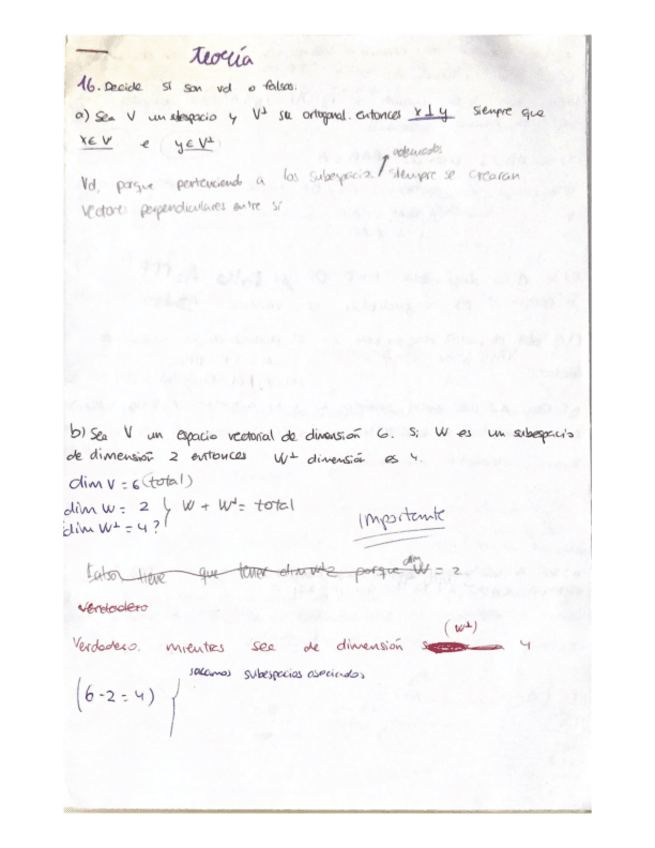 Teoría
16. Decide si son vd o falsas.
a) Sea V un subespacio y V⊥ su ortogonal. entonces x⊥y siempre que
x∈V e y∈V⊥
adecuados
Vd, porque perteneciendo a los subespacios siempre se crearan
vectores perpendiculares entre sí
b) Sea V un espacio vectorial de dimensión 6. Si W es un subespacio
de dimensión 2 entonces W⊥ dimensión es 4.
dim V = 6 (total)
dim W = 2 } W + W⊥ = total
dim W⊥ = 4?
Importante
tiene que tener porque dim W = 2
Verdadero
Verdadero. mientras sea de dimensión (W⊥) 4
(6-2=4) { sacamos subespacios asociados